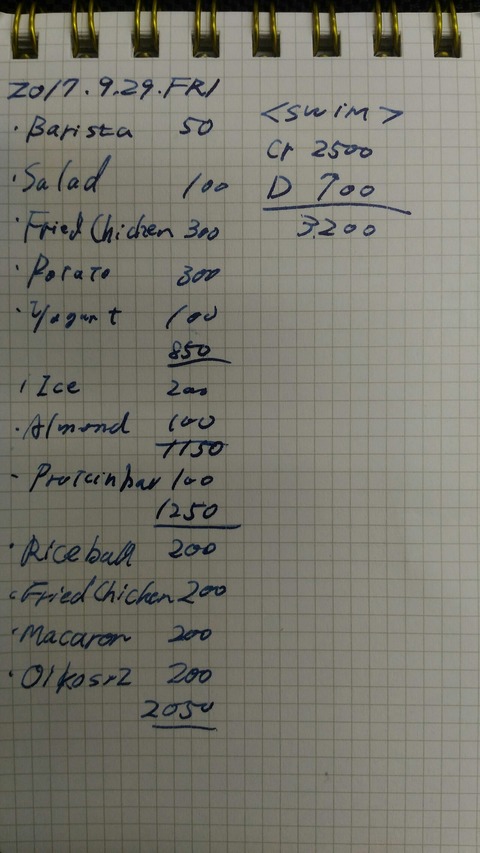 2017.9.29.FRI
・Barista 50
・Salad 100
・Fried Chicken 300
・Potato 300
・Yogurt 100
850
・Ice 200
・Almond 100
1150
・Proteinbar 100
1250
・Riceball 200
・Fried Chicken 200
・Macaron 200
・Oikosx2 200
2050
<swim>
Cr 2500
D 700
3200